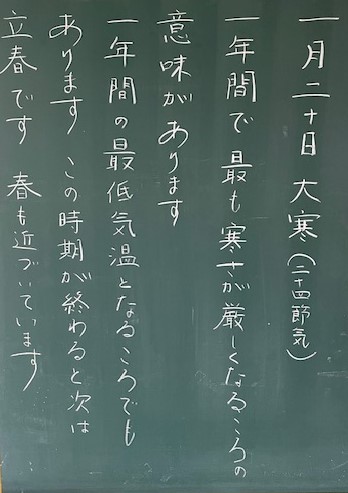 一月二十日 大寒(二十四節気)
一年間で 最も寒さが厳しくなるころの
意味があります
一年間の最低気温となるころでも
あります この時期が終わると次は
立春です 春も近づいています